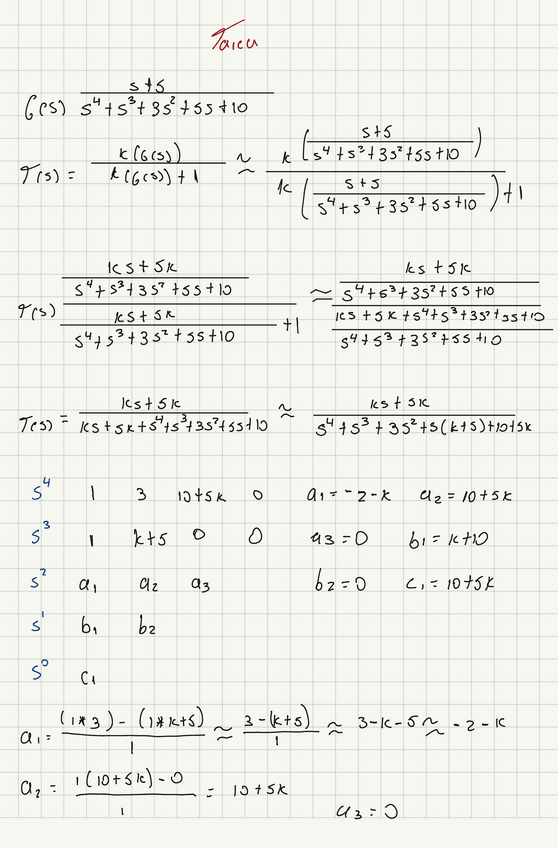 Tarea
G(s) (s+5)/(s⁴+s³+3s²+5s+10)
T(s) = (k(G(s)))/(k(G(s))+1) ≈ (k((s+5)/(s⁴+s³+3s²+5s+10)))/(k((s+5)/(s⁴+s³+3s²+5s+10))+1)
T(s) ((ks+5k)/(s⁴+s³+3s²+5s+10))/((ks+5k)/(s⁴+s³+3s²+5s+10)+1) ≈ ((ks+5k)/(s⁴+s³+3s²+5s+10))/((ks+5k+s⁴+s³+3s²+5s+10)/(s⁴+s³+3s²+5s+10))
T(s) = (ks+5k)/(ks+5k+s⁴+s³+3s²+5s+10) ≈ (ks+5k)/(s⁴+s³+3s²+s(k+5)+10+5k)
s⁴ 1 3 10+5k 0 a₁=-2-k a₂=10+5k
s³ 1 k+5 0 0 a3=0 b₁=k+10
s² a₁ a₂ a₃ b₂=0 c₁=10+5k
s¹ b₁ b₂
s⁰ c₁
a₁= ((1*3)-(1*k+5))/1 ≈ (3-(k+5))/1 ≈ 3-k-5 ≈ -2-k
a₂ = (1(10+5k)-0)/1 = 10+5k
a₃=0